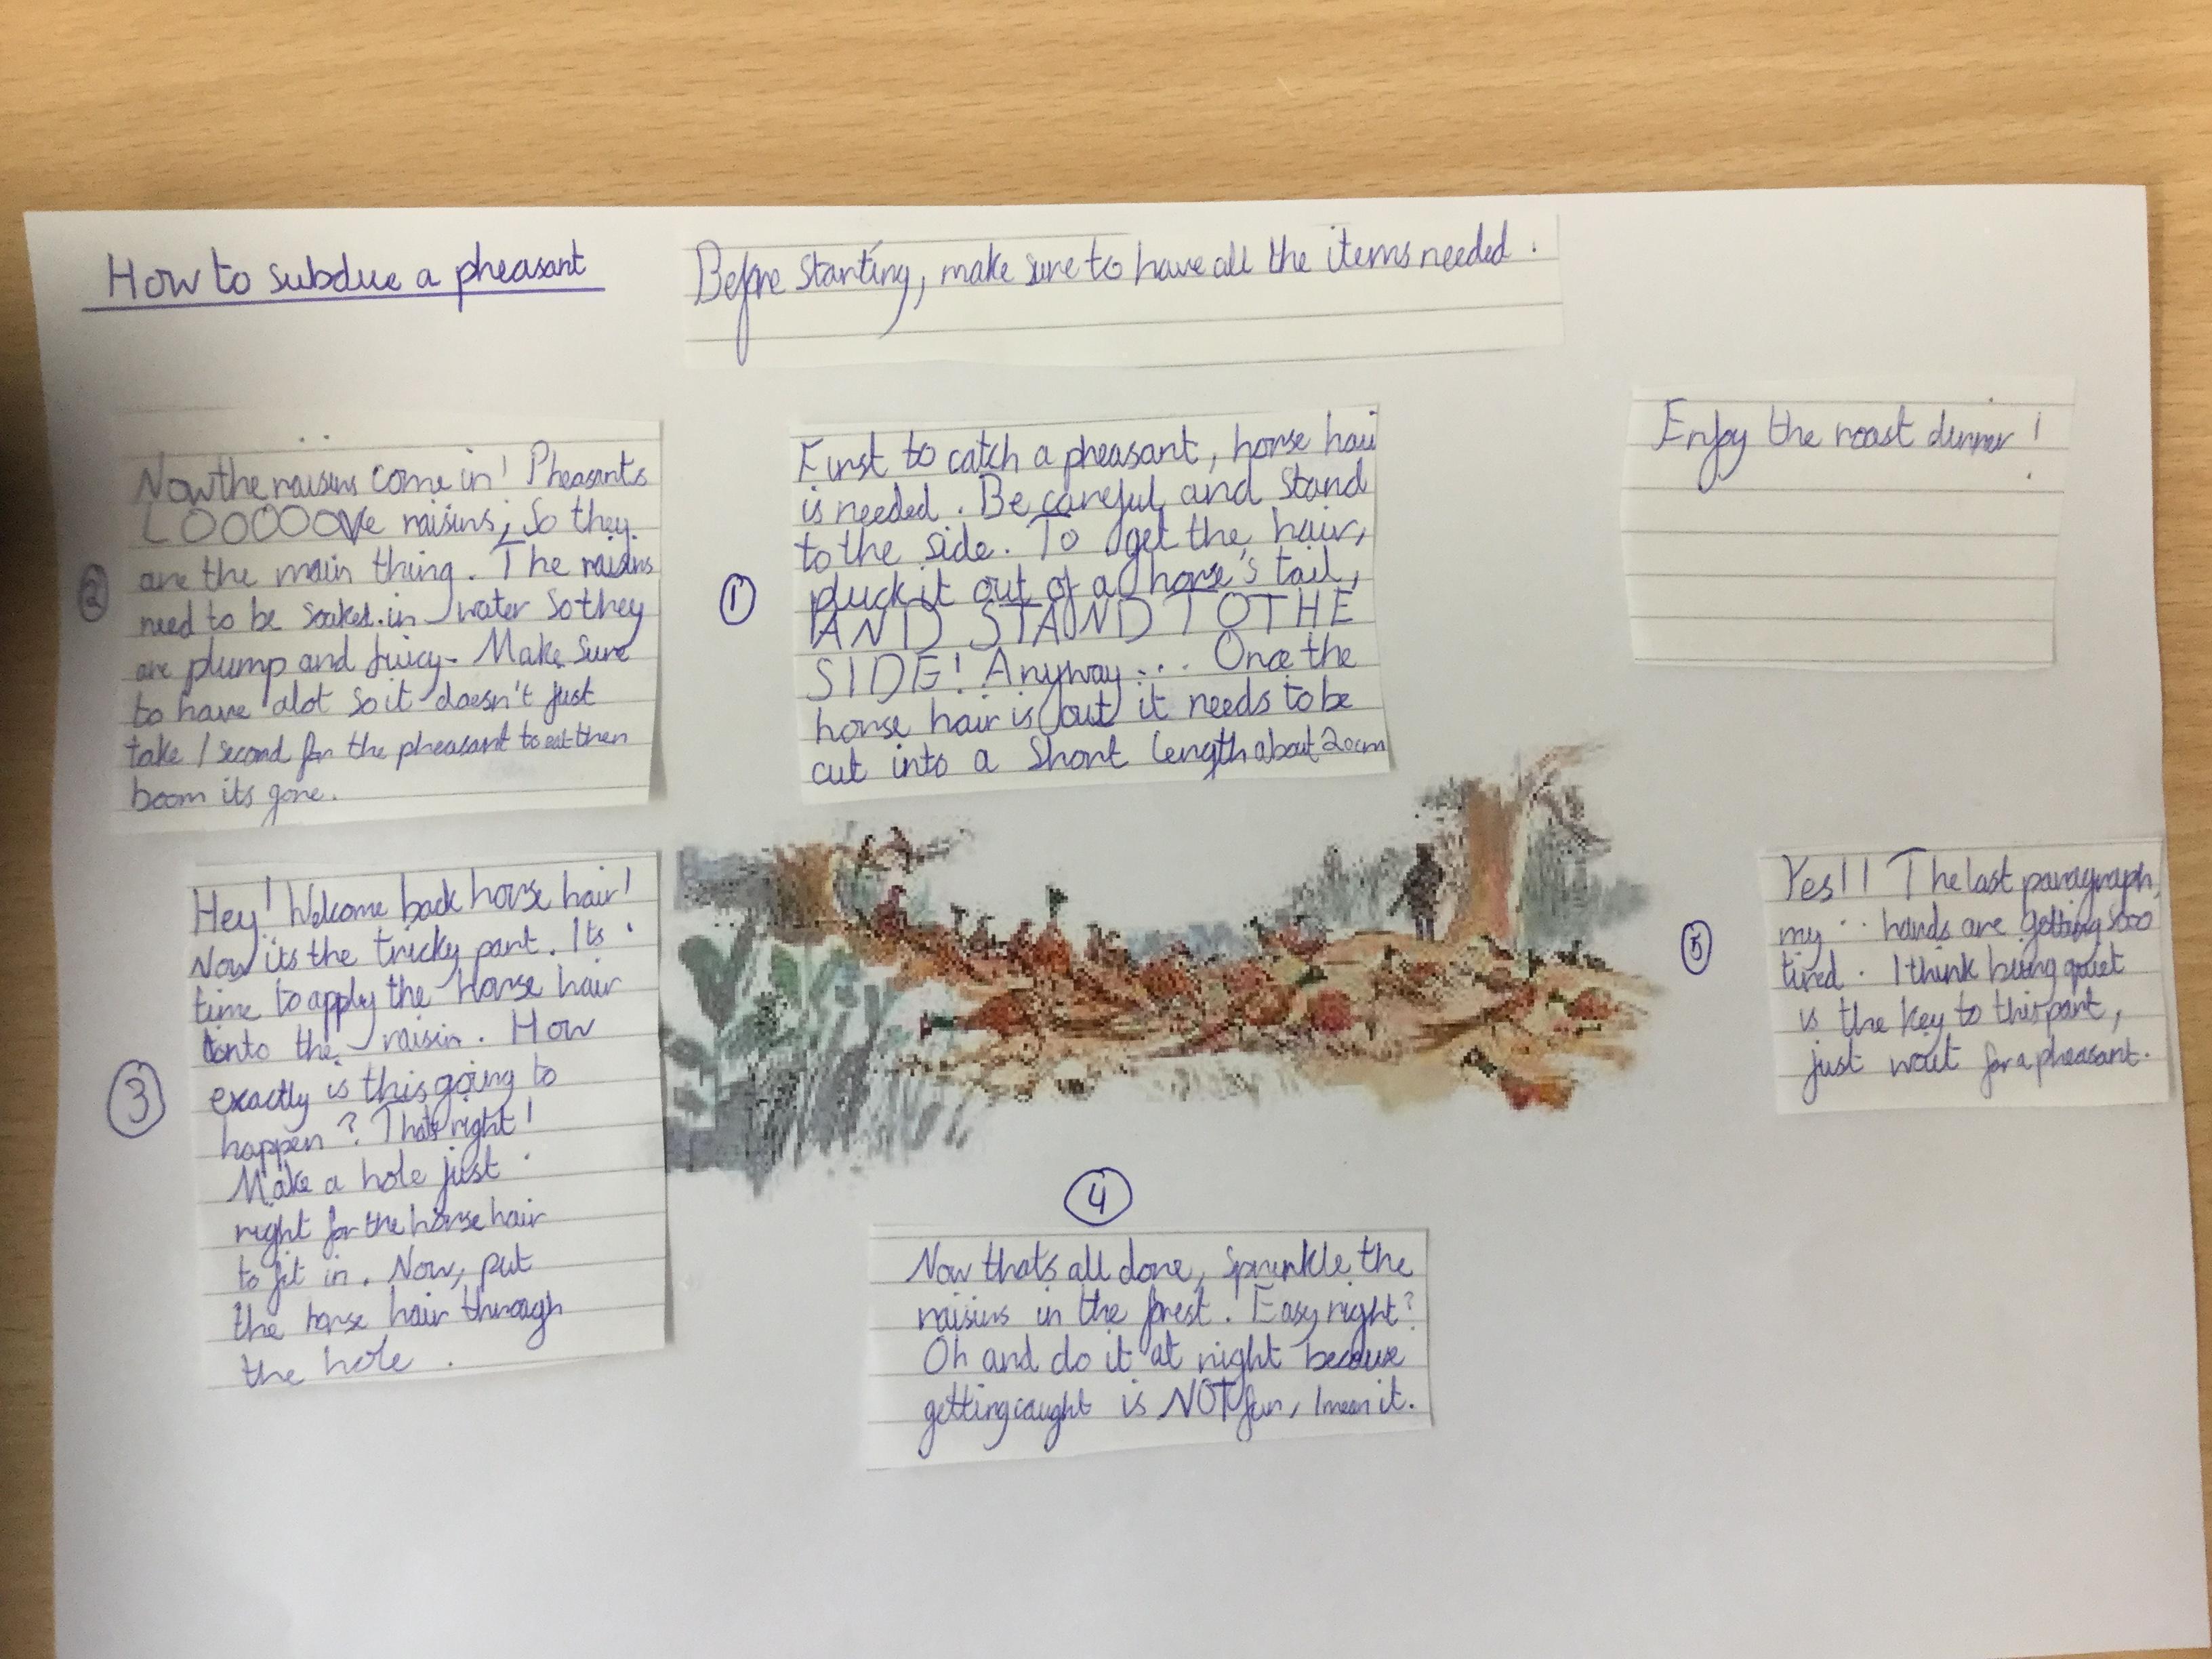 How to subdue a pheasant
Before starting, make sure to have all the items needed.
①
First to catch a pheasant, horse hair
is needed. Be careful and stand
to the side. To get the hair,
pluck it out of a horse's tail,
AND STAND TO THE
SIDE! Anyway... Once the
horse hair is out it needs to be
cut into a short length about 20cm
②
Now the raisins come in! Pheasants
LOOOOOVe raisins, so they
are the main thing. The raisins
need to be soaked in water so they
are plump and juicy. Make sure
to have alot so it doesn't just
take 1 second for the pheasant to eat then
boom its gone.
③
Hey! Welcome back horse hair!
Now its the tricky part. Its
time to apply the horse hair
onto the raisin. How
exactly is this going to
happen? Thats right!
Make a hole just
right for the horse hair
to fit in. Now, put
the horse hair through
the hole.
④
Now thats all done, sprinkle the
raisins in the forest. Easy right?
Oh and do it at night because
getting caught is NOT fun, I mean it.
⑤
Yes!! The last paragraph,
my hands are getting sooo
tired. I think being quiet
is the key to this part,
just wait for a pheasant.
Enjoy the roast dinner!